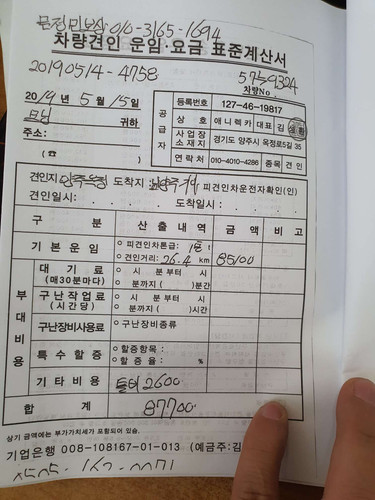 010-3165-1694
차량견인 운임·요금 표준계산서
20190514-4758
차량No.
2019 년 5 월 15 일
귀하
주소:
(☎ )
공급자
등록번호 127-46-19817
상호 애니렉카 대표 김
사업장소재지 경기도 양주시 옥정로5길 35
연락처 010-4010-4286 종목 견인
견인지 양주옥정 도착지 남양주 피견인차운전자확인(인)
견인일시: . . : 도착일시: . . :
구분 산출내역 금액 비고
기본운임 ○ 피견인차톤급: t
○ 견인거리: 26.4 km 85100
부대비용
대기료 (매30분마다) ○ 시 분부터 시
○ 분까지( )분간
구난작업료 (시간당) ○ 시 분부터 시
○ 분까지( )시간
구난장비사용료 ○ 구난장비종류
특수할증 ○ 할증항목:
○ 할증율: %
기타비용 2600
합계 87700
상기 금액에는 부가가치세가 포함되어 있슴.
기업은행 008-108167-01-013 (예금주:김